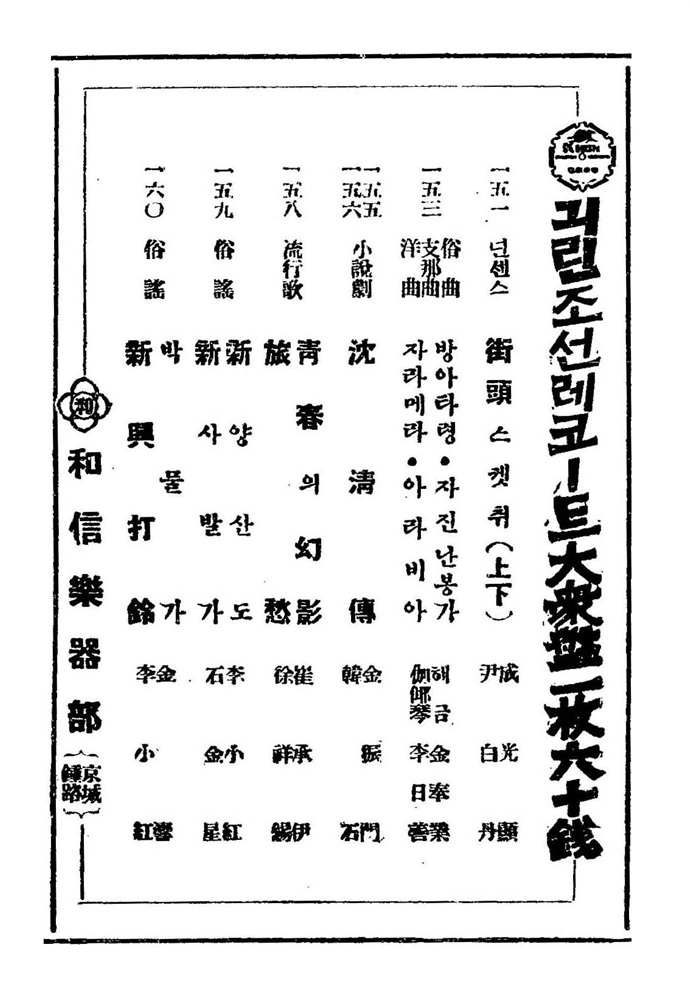 긔린조선레코ー드大衆盤一枚六十錢
一五一
넌센스
街頭스켓취(上下)
成光顯
尹白丹
一五三
俗曲
支那曲
洋曲
방아타령・자진난봉가
자라메라・아라비아
해금 金奉業
伽倻琴 李日善
一五五
一五六
小說劇
沈淸傳
金振門
韓石
一五八
流行歌
靑春의幻影
旅愁
崔承伊
徐祥錫
一五九
俗謠
新양산도
新사발가
李小紅
石金星
一六〇
俗謠
박물가
新興打鈴
金響
李小紅
和信樂器部
(京城鍾路)